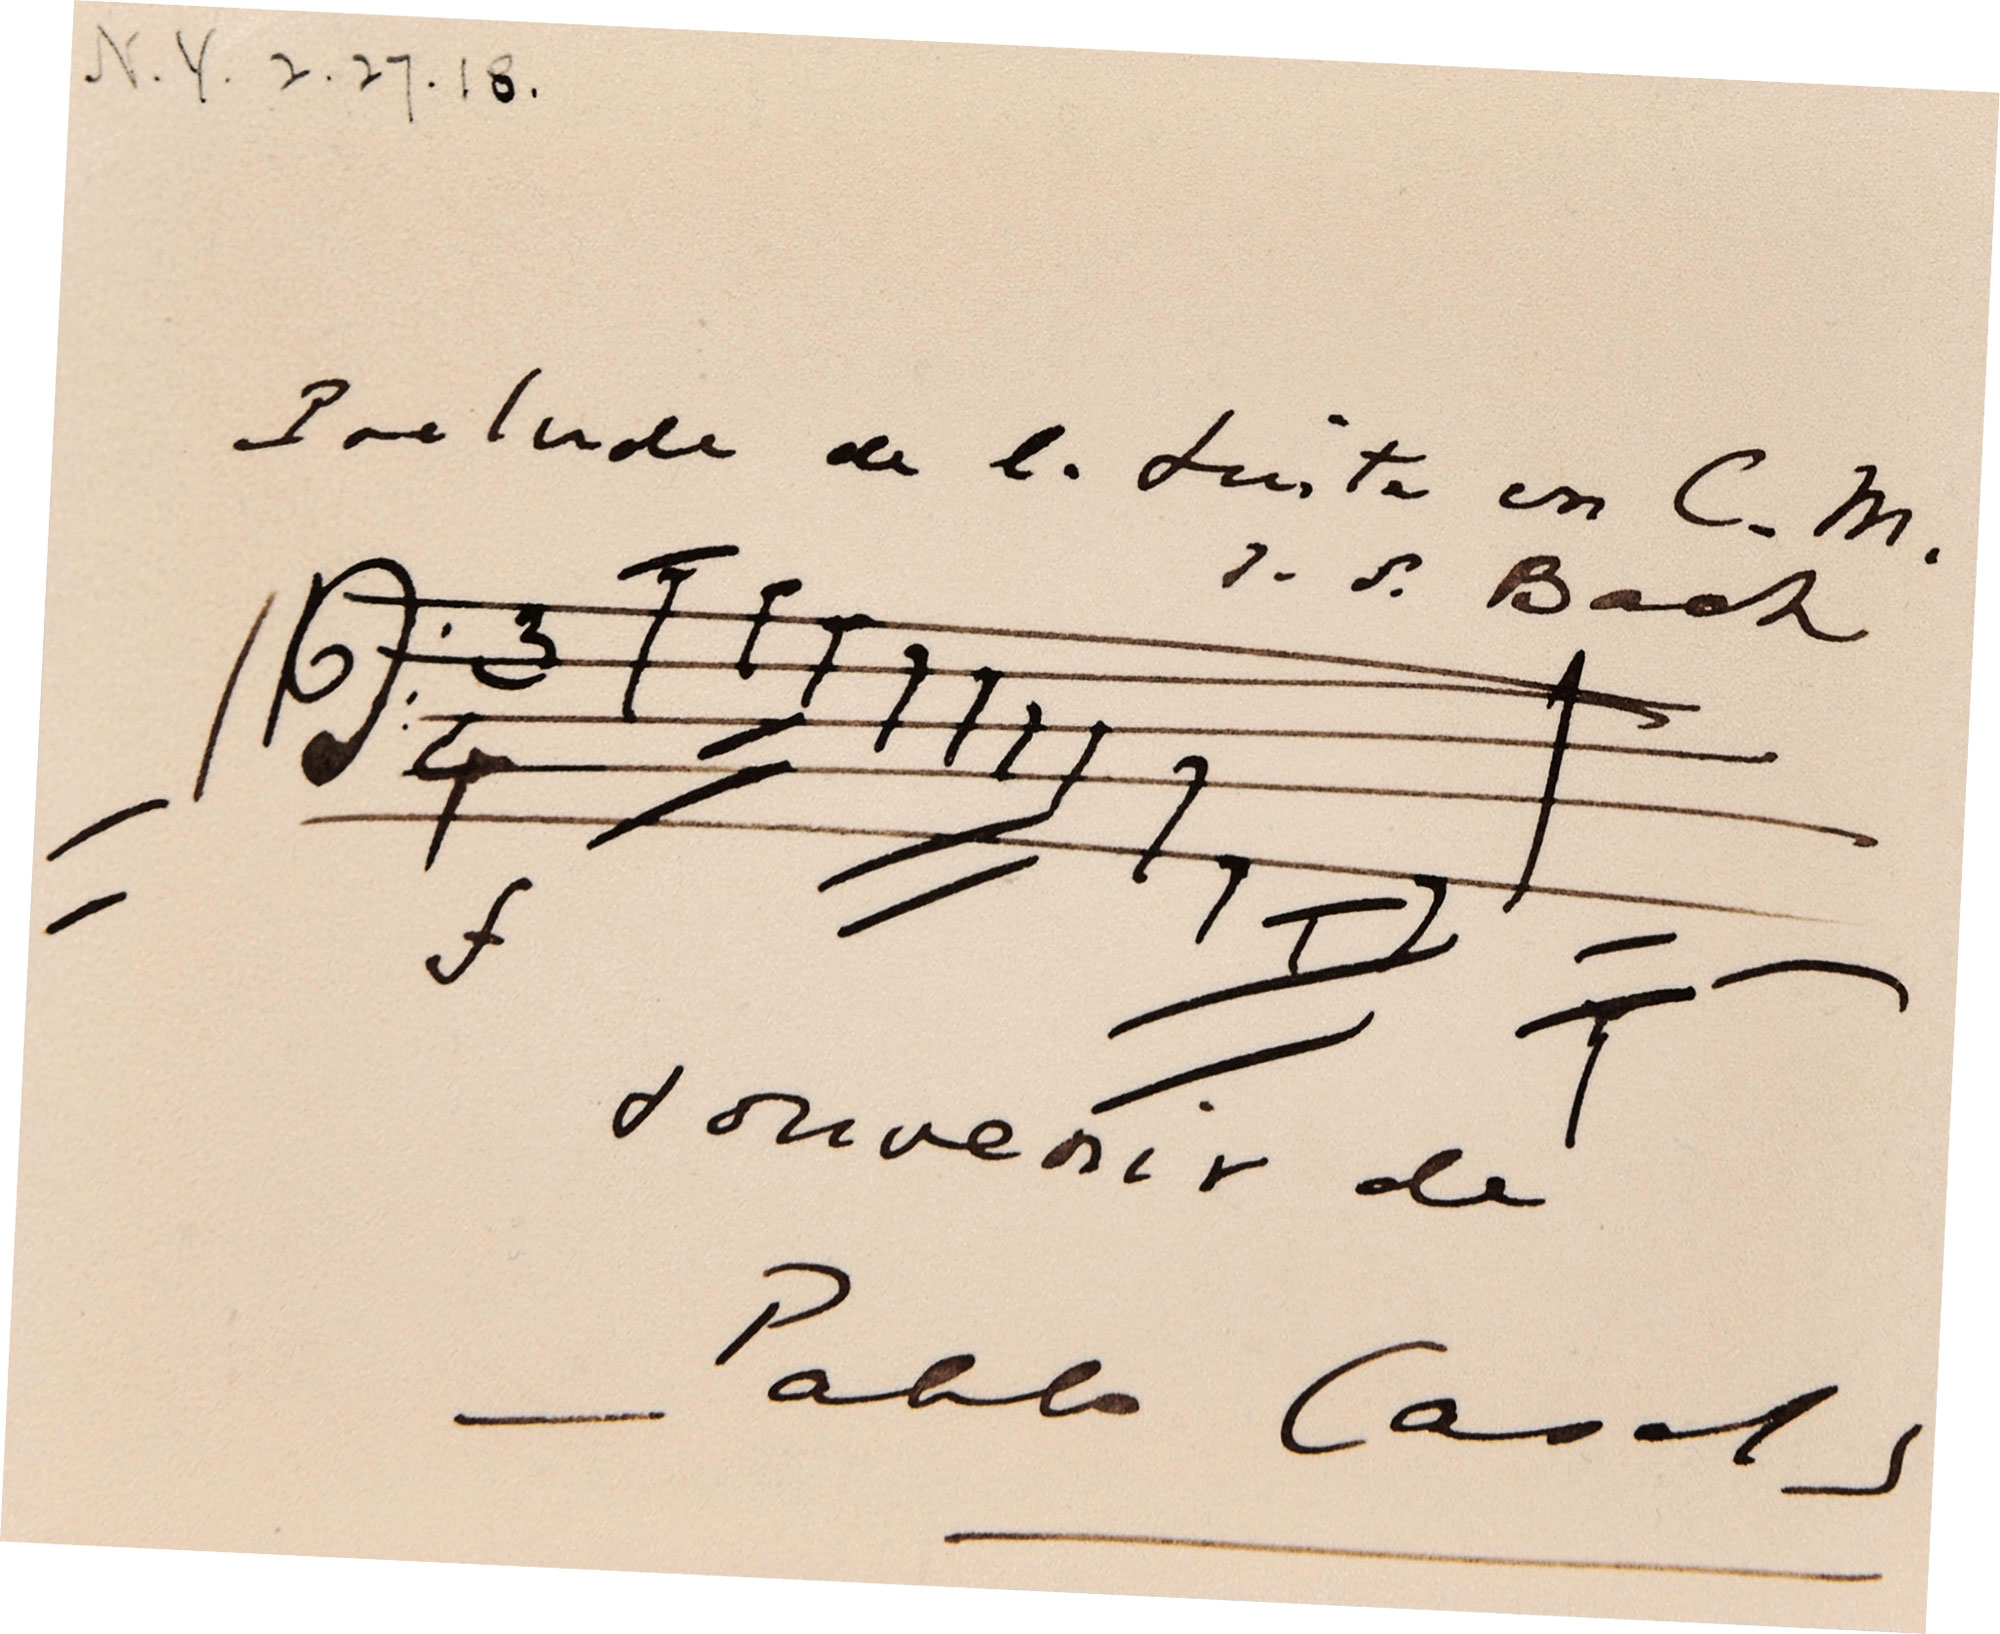 N.Y. 2.27.18.
Prelude de la Suite en C. M.
J. S. Bach
3
4
f
souvenir de
Pablo Casals